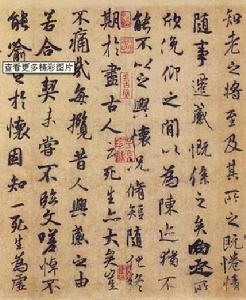 知老之將至及其所之既惓情
隨事遷感慨係之矣向之所
欣俛仰之閒以為陳迹猶不
能不以之興懷況脩短隨化終
期於盡古人云死生亦大矣豈
不痛哉每攬昔人興感之由
若合一契未嘗不臨文嗟悼不
能喻之於懷固知一死生為虛
查看更多精彩图片